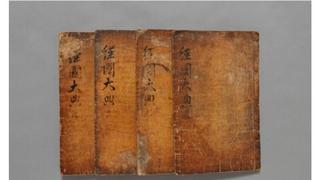 經國大典
經國大典
經國大典
經國大典